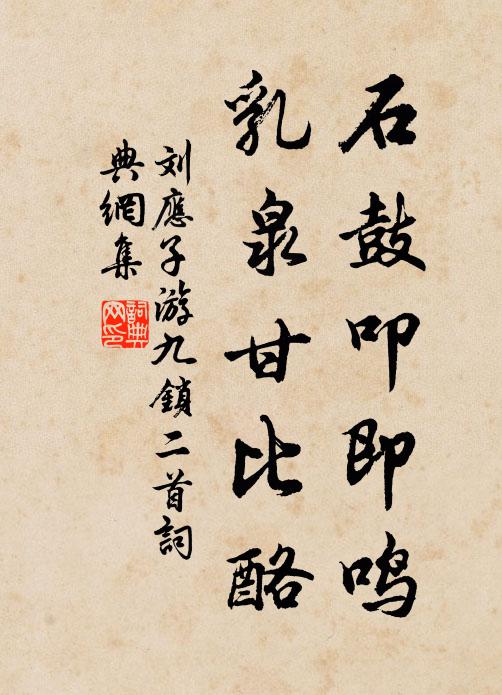 石鼓叩即鸣
乳泉甘比酪
刘應子游九鎖二首詞
典網集
詞典网印